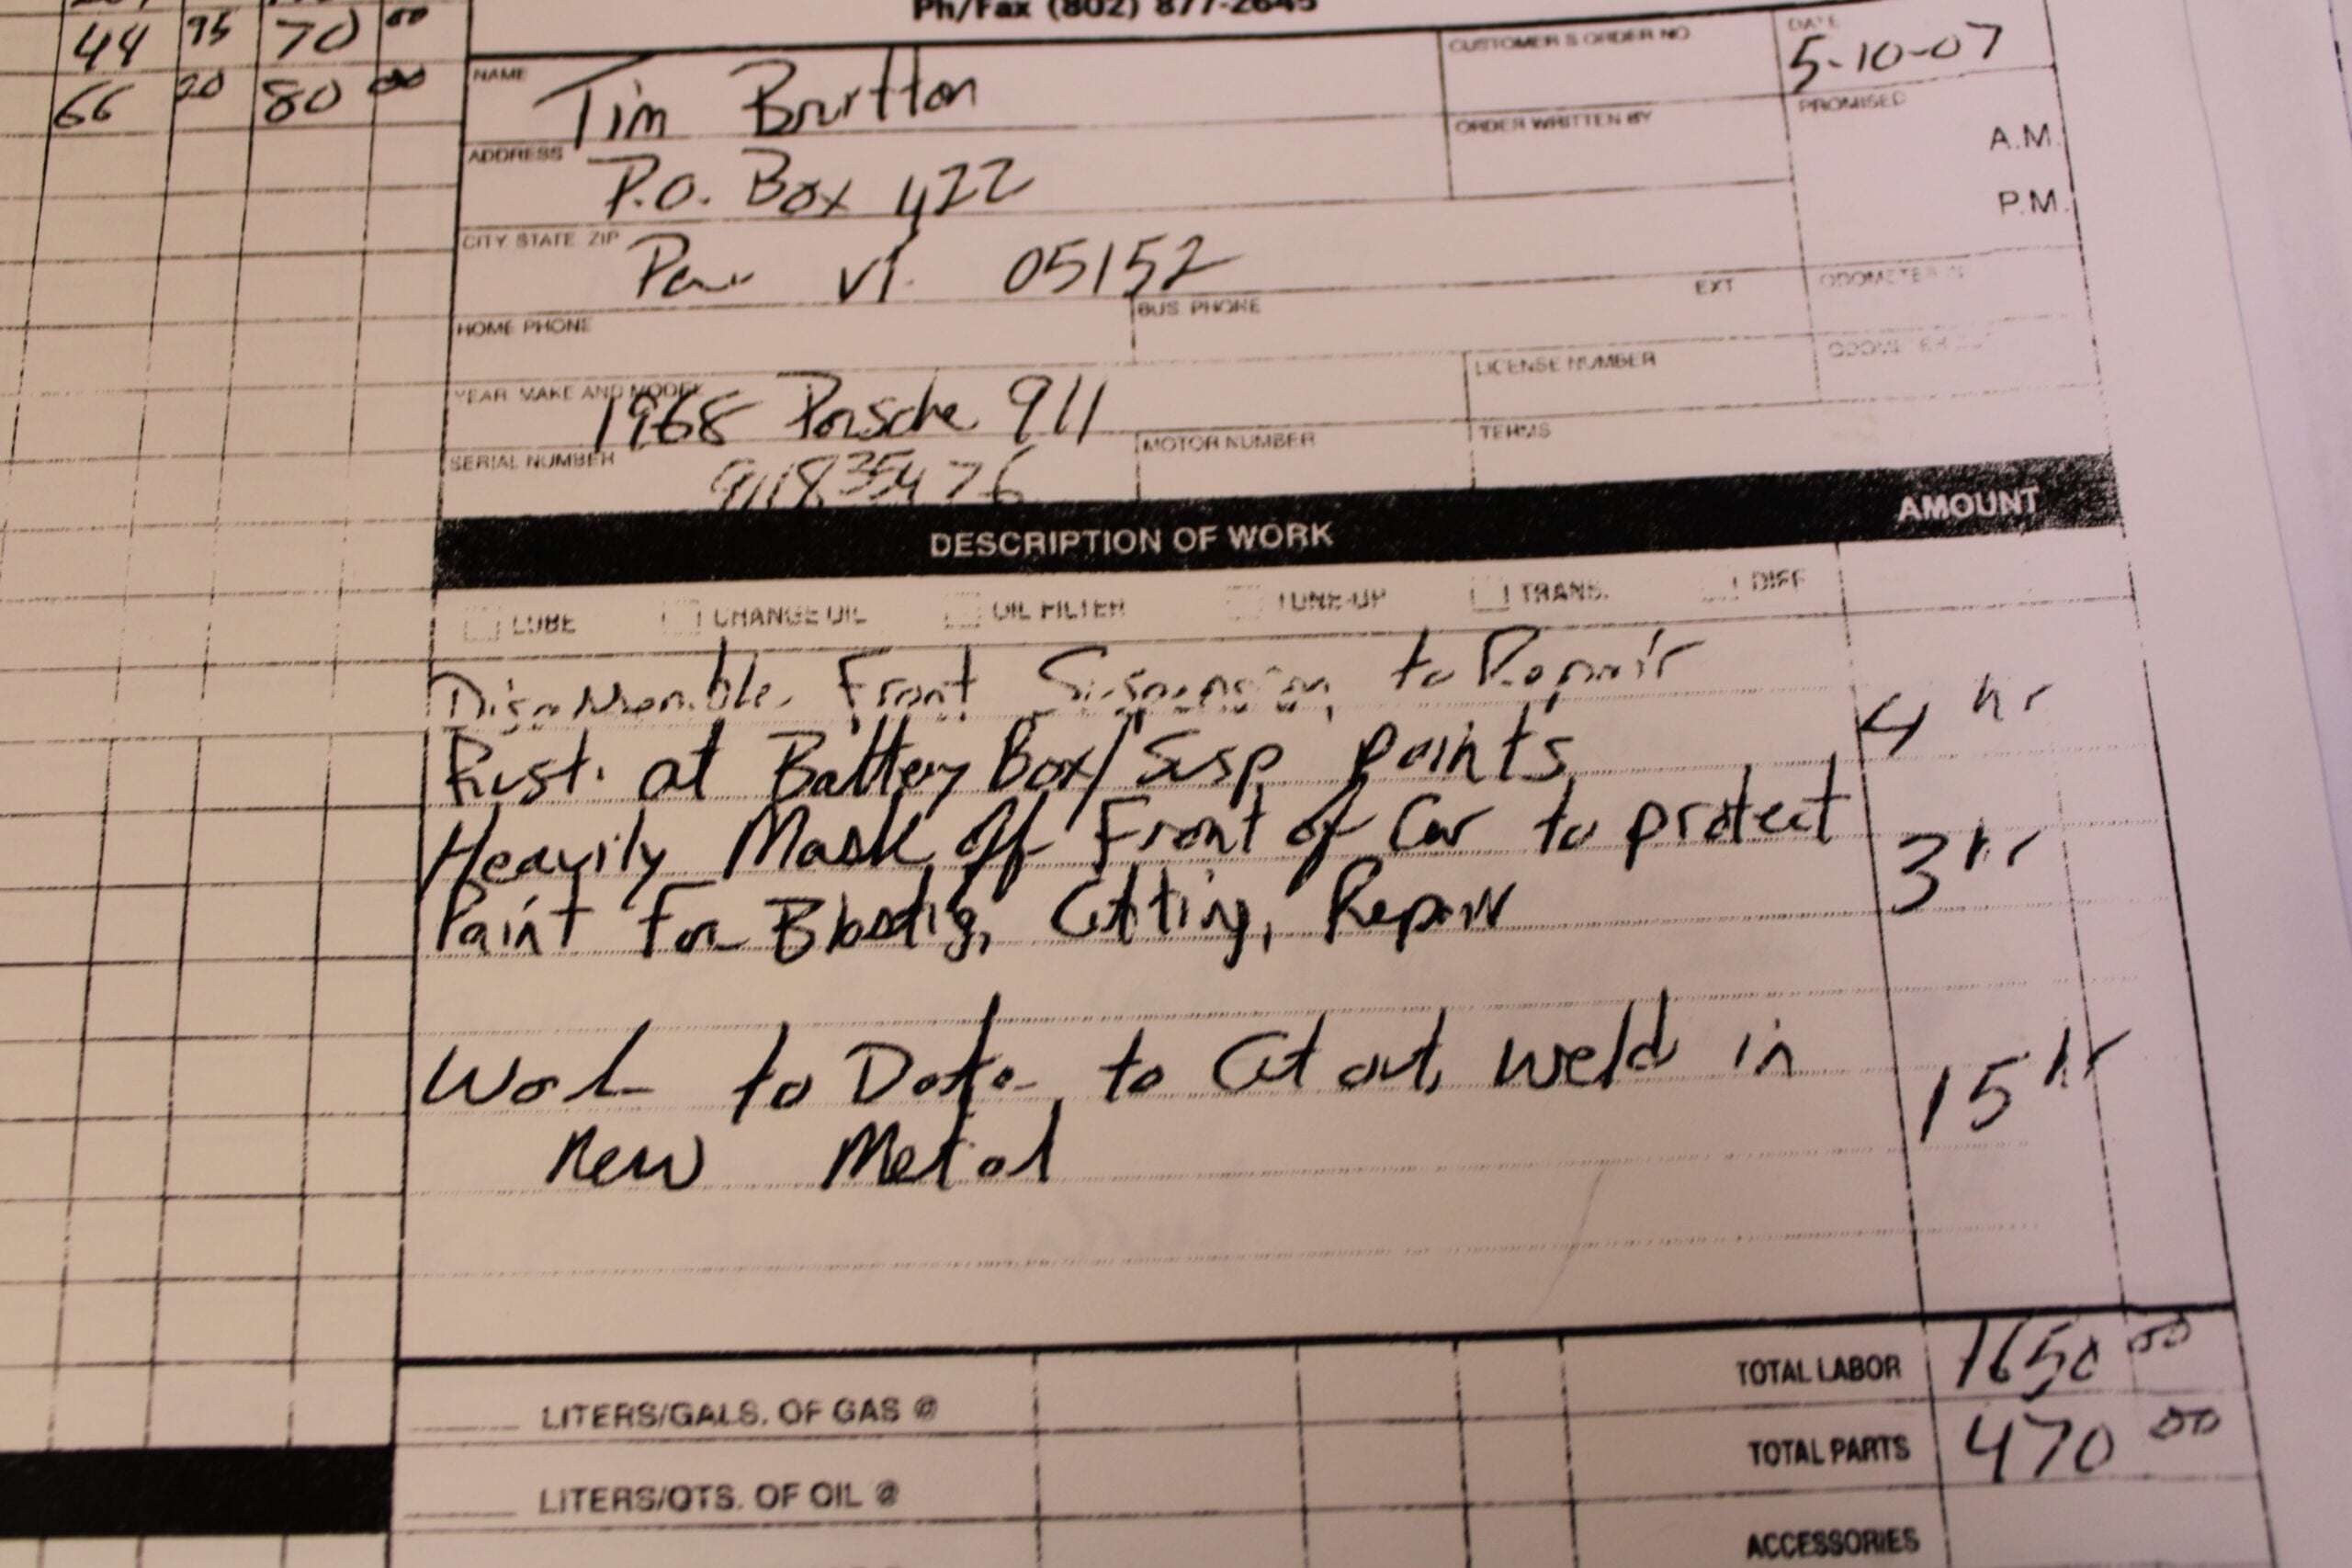 Ph/Fax (802) 877-2645
44 95 70 00
66 20 80 00
NAME Tim Burtton
CUSTOMER'S ORDER NO
DATE 5-10-07
ADDRESS P.O. Box 422
ORDER WRITTEN BY
PROMISED
A.M.
P.M.
CITY STATE ZIP Vt. 05152
HOME PHONE
BUS. PHONE
EXT
ODOMETER IN
YEAR MAKE AND MODEL 1968 Porsche 911
LICENSE NUMBER
SERIAL NUMBER 911835476
MOTOR NUMBER
TERMS
DESCRIPTION OF WORK
AMOUNT
LUBE CHANGE OIL OIL FILTER TUNE-UP TRANS. DIFF
Dissassemble Front Suspension, to Repair
Rust. at Battery Box/Susp points 4 hr
Heavily Mask off Front of Car to protect
Paint For Blastig, Cutting, Repair 3 hr
Work to Date to Cut out, weld in
New Metal 15 hr
TOTAL LABOR 1650 00
LITERS/GALS. OF GAS @
TOTAL PARTS 470 00
LITERS/QTS. OF OIL @
ACCESSORIES